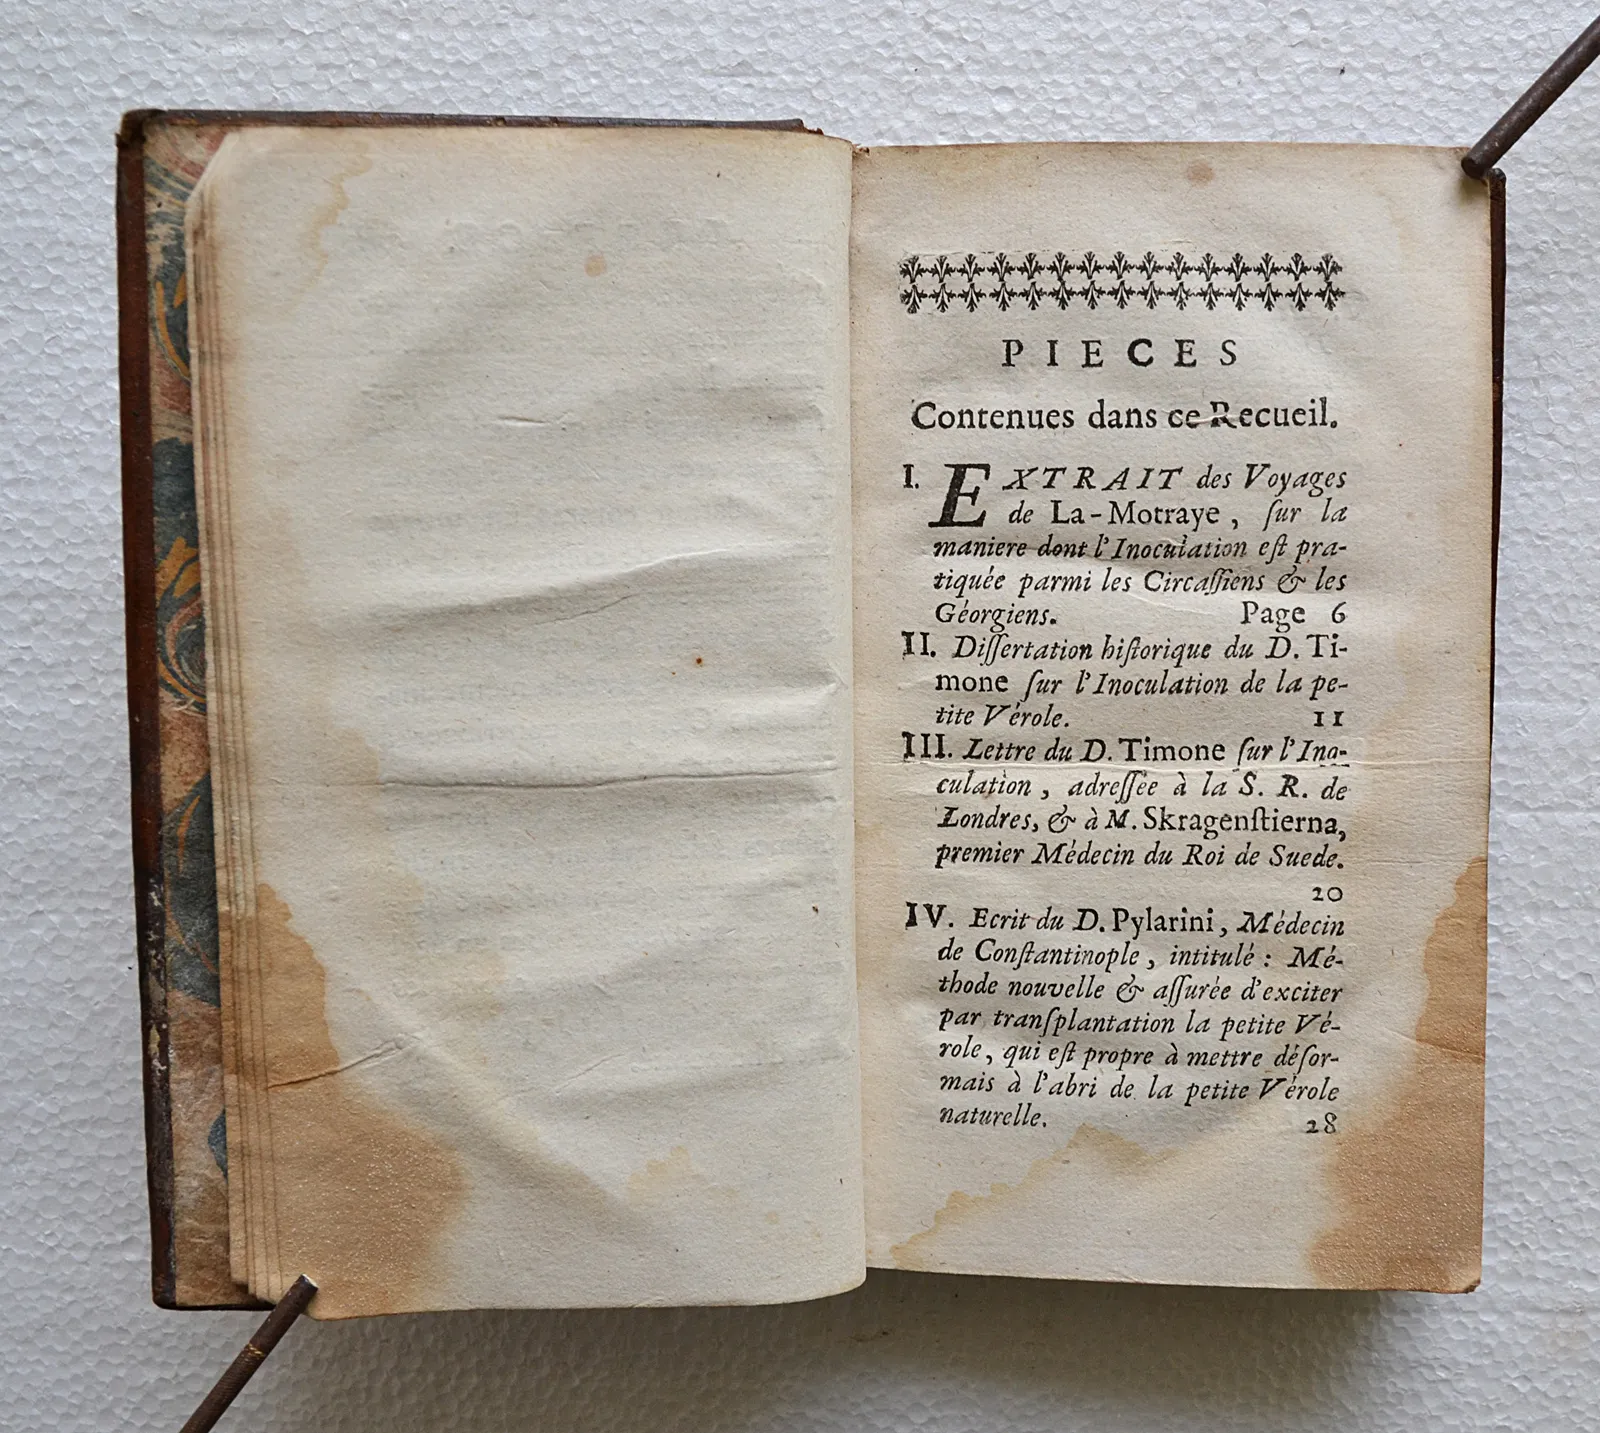 PIECES
Contenues dans ce Recueil.
I. EXTRAIT des Voyages
de La-Motraye, ſur la
maniere dont l'Inoculation eſt pra-
tiquée parmi les Circaſſiens & les
Géorgiens. Page 6
II. Diſſertation hiſtorique du D. Ti-
mone ſur l'Inoculation de la pe-
tite Vérole. 11
III. Lettre du D. Timone ſur l'Ino-
culation, adreſſée à la S. R. de
Londres, & à M. Skragenſtierna,
premier Médecin du Roi de Suede.
20
IV. Ecrit du D. Pylarini, Médecin
de Conſtantinople, intitulé : Mé-
thode nouvelle & aſſurée d'exciter
par tranſplantation la petite Vé-
role, qui eſt propre à mettre déſor-
mais à l'abri de la petite Vérole
naturelle. 28